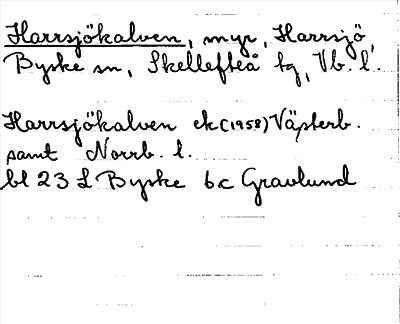 Harrsjökalven, myr, Harrsjö,
Byske sn, Skellefteå tg, Vb. l.
Harrsjökalven ek (1958) Västerb.
samt Norrb. l.
bl 23 L Byske 6c Gravlund